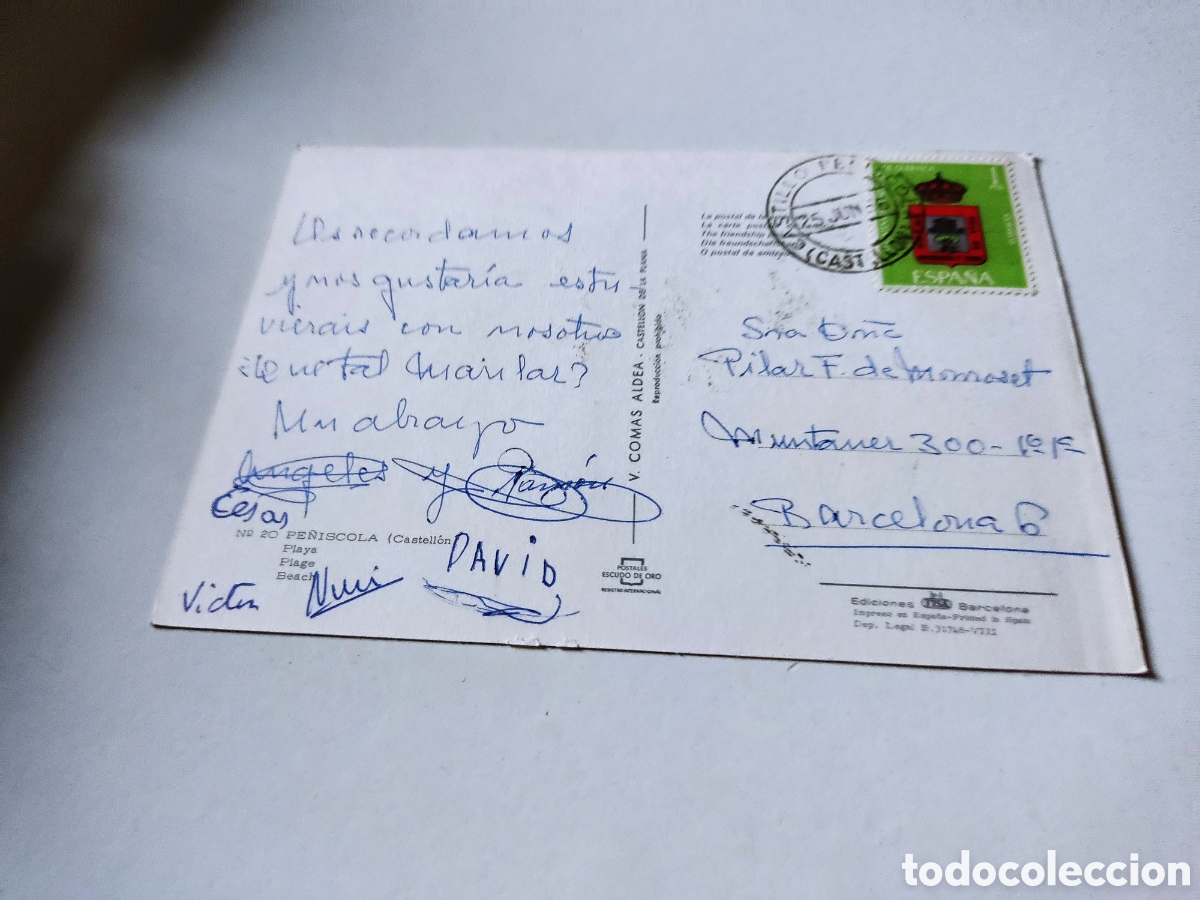 Les recordamos
y nos gustaría estu-
vierais con nosotros
¿Que tal Mari Par?
Un abrazo
Angeles y Ramón
Cesar
Nº 20 PEÑISCOLA (Castellón
Playa
Plage
Beach
DAVID
Victor Nuri
V. COMAS ALDEA - CASTELLON DE LA PLANA
Reproducción prohibida
POSTALES
ESCUDO DE ORO
REGISTRO INTERNACIONAL
La postal de la
La carte postale
The friendship
Die freundschaft
O postal da amizade
25 JUN
(CAST
1
ESPAÑA
Sra Dña
Pilar F. de Monraset
Muntaner 300 - 1º 1ª
Barcelona 6
Ediciones FISA Barcelona
Impreso en España-Printed in Spain
Dep. Legal B. 31748-VIII
todocoleccion